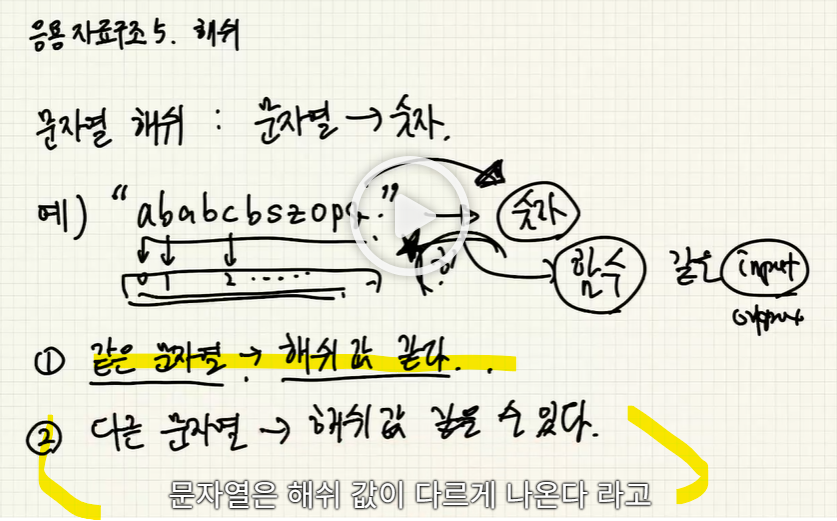 응용 자료구조 5. 해쉬
문자열 해쉬 : 문자열 → 숫자.
예) "ababcbszop.." → 숫자
0 1 2 ..... 함수 같은 input
output
① 같은 문자열 → 해쉬 값 같다.
② 다른 문자열 → 해쉬 값 같을 수 있다.
문자열은 해쉬 값이 다르게 나온다 라고